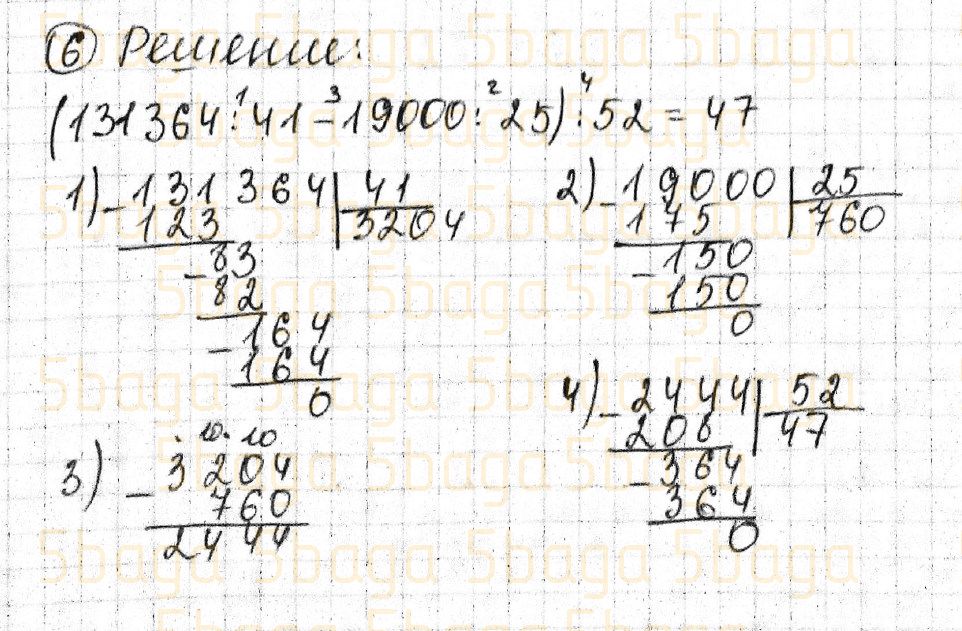 6 Решение:
(131364 : 41 - 19000 : 25) : 52 = 47
1 3 2 4
1) - 131364 | 41
123 3204
- 83
82
- 164
164
0
2) - 19000 | 25
175 760
- 150
150
0
3) 10 10
- 3204
760
2444
4) - 2444 | 52
208 47
- 364
364
0
5baga